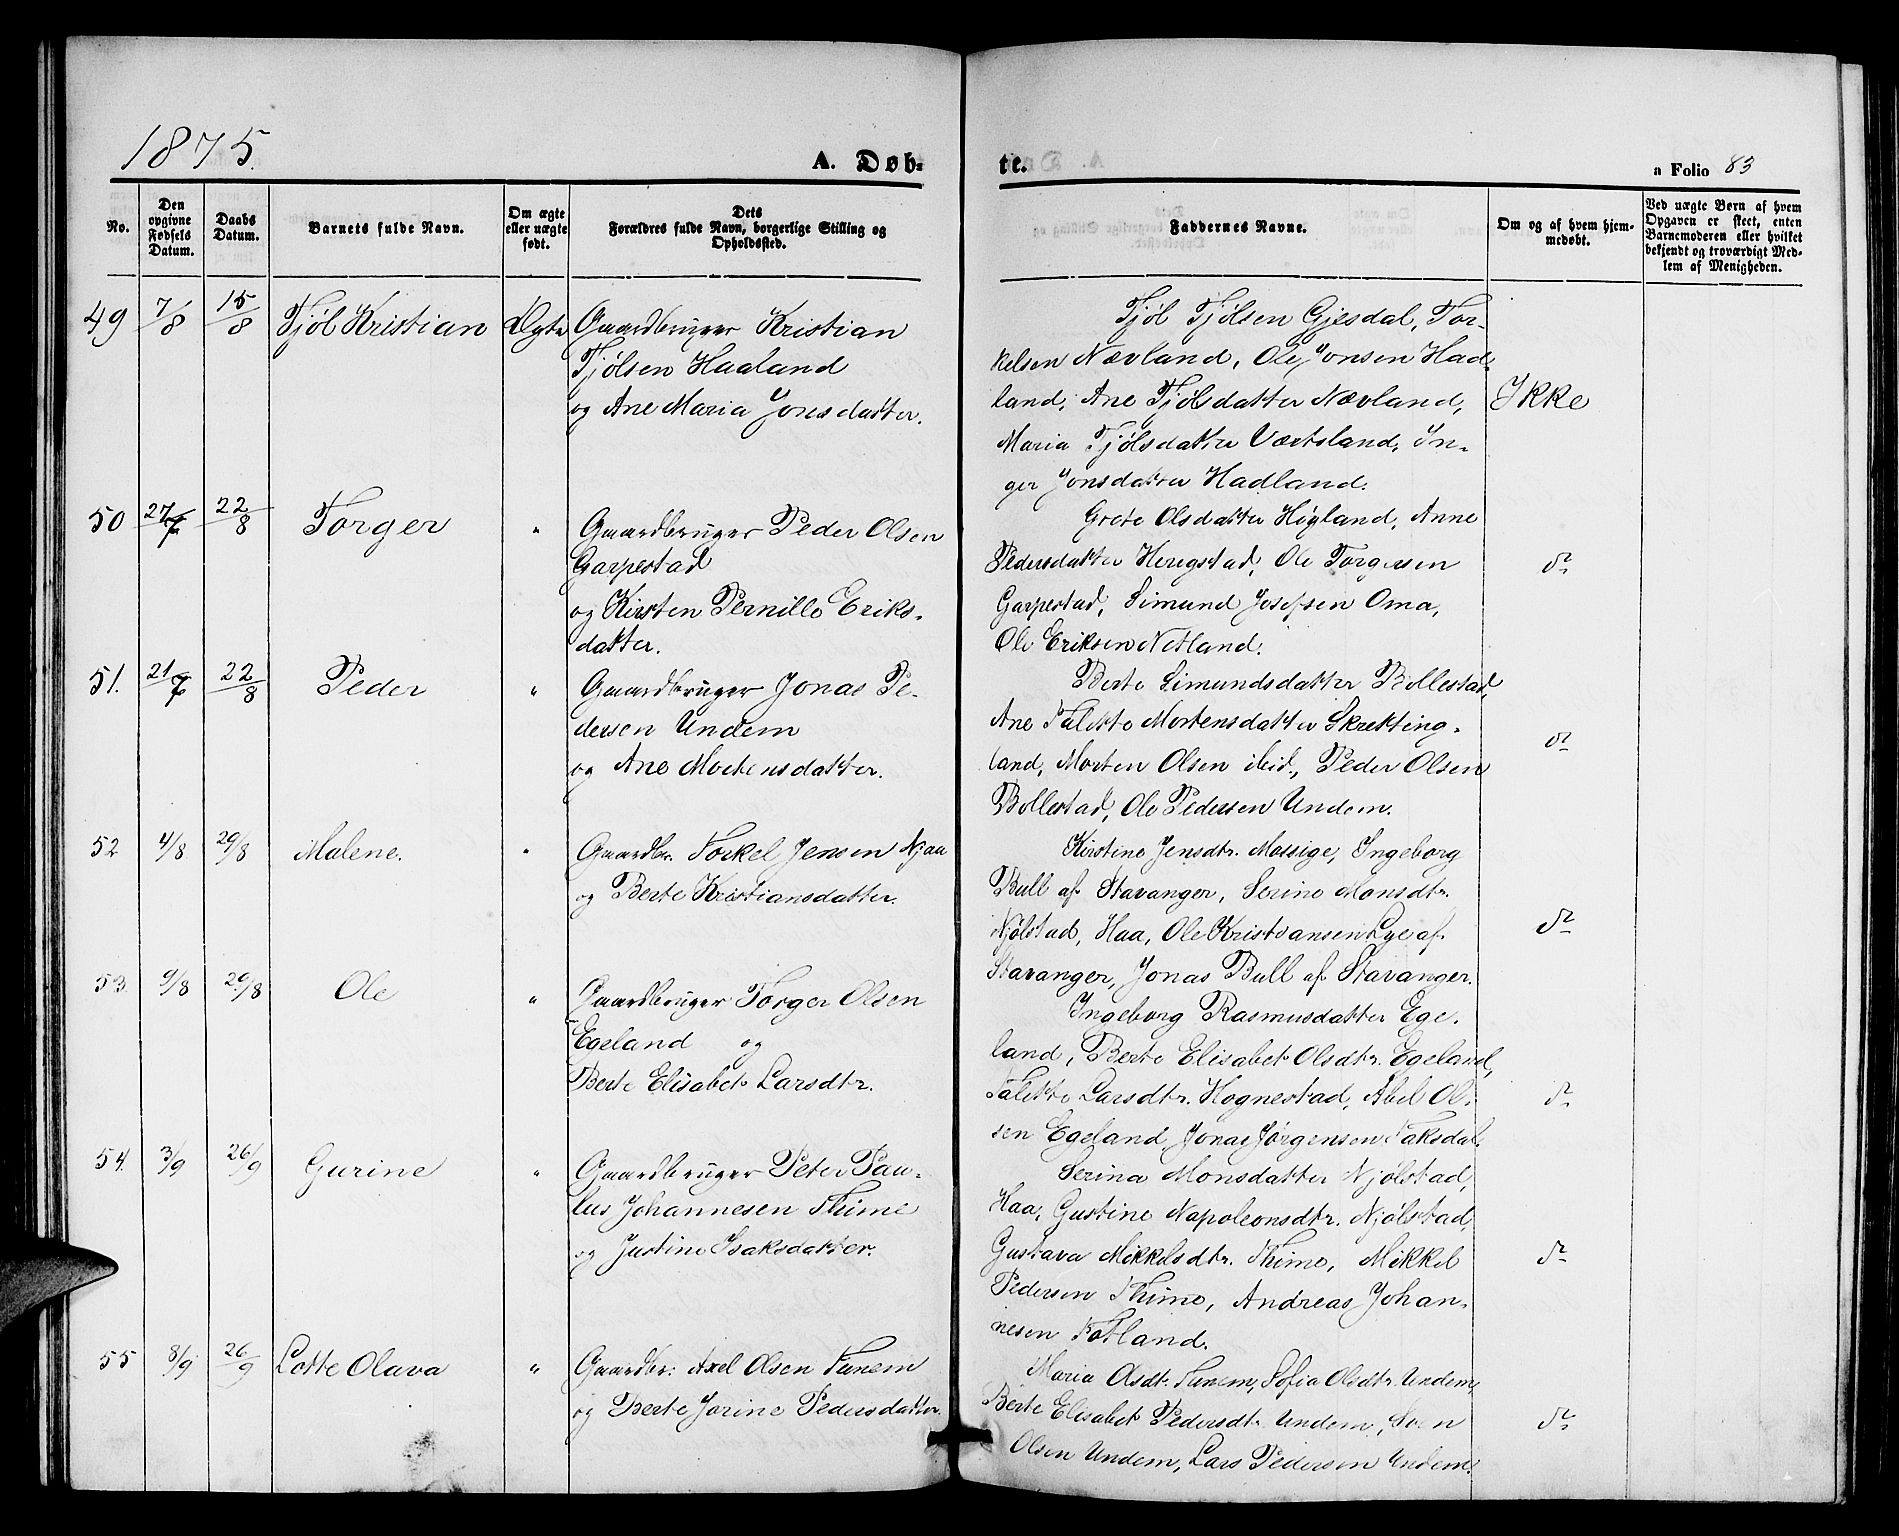 1875.
A. Døb-
te.
a Folio 83
No.
Den opgivne Fødsels Datum.
Daabs Datum.
Barnets fulde Navn.
Om ægte eller uægte født.
Dets Forældres fulde Navn, borgerlige Stilling og Opholdssted.
Faddernes Navne.
Om og af hvem hjemmedøbt.
Ved uægte Børn af hvem Opgaven er skeet, enten Barnemoderen eller hvilket bekjendt og troværdigt Medlem af Menigheden.
49 7/8 15/8 Tjøl Kristian Ægte Gaardbruger Kristian
Tjølsen Haaland
og Ane Maria Jonsdatter.
Tjøl Tjølsen Gjesdal, Tor-
kelsen Nævland, Ole Jonsen Had-
land, Ane Tjølsdatter Nævland,
Maria Tjølsdatter Værtsland, In-
ger Jonsdatter Hadland.
Ikke
50 27/7 22/8 Torger " Gaardbruger Peder Olsen
Garpestad
og Kirsten Pernille Eriks-
datter.
Grete Olsdatter Høgland, Anne
Pedersdatter Heregstad, Ole Torgersen
Garpestad, Simund Josefsen Oma,
Ole Eriksen Netland.
do
51. 21/7 22/8 Peder " Gaardbruger Jonas Pe-
dersen Undem
og Ane Mortensdatter.
Berte Simundsdatter Bollestad,
Ane Talette Mortensdatter Skrekting-
land, Morten Olsen ibid., Peder Olsen
Bollestad, Ole Pedersen Undem.
do
52 4/8 29/8 Malene. " Gaardbr. Torkel Jensen Njaa
og Berte Kristiansdatter.
Kirstine Jensdtr. Mossige, Ingeborg
Bull af Stavanger, Serine Monsdtr.
Njølstad, Haa, Ole Kristiansen Lye af
Stavanger, Jonas Bull af Stavanger.
do
53. 9/8 29/8 Ole " Gaardbruger Torger Olsen
Egeland og
Berte Elisabet Larsdtr.
Ingeborg Rasmusdatter Ege-
land, Berte Elisabet Olsdtr. Egeland,
Talette Larsdtr. Hognestad, Abel Ol-
sen Egeland, Jonas Jørgensen Taksdal.
do
54. 3/9 26/9 Gurine " Gaardbruger Peter Pau-
lus Johannesen Thime
og Justine Isaksdatter.
Serina Monsdatter Njølstad,
Haa, Gustine Napoleonsdtr. Njølstad,
Gustava Mikkelsdtr. Thime, Mikkel
Pedersen Thime, Andreas Johan-
nesen Fotland.
do
55 8/9 26/9 Lotte Olava " Gaardbr. Axel Olsen Tunem
og Berte Jorine Pedersdatter.
Maria Olsdt. Tunem, Sofia Olsdtr. Undem,
Berte Elisabet Pedersdtr. Undem, Sven
Olsen Undem, Lars Pedersen Undem.
do